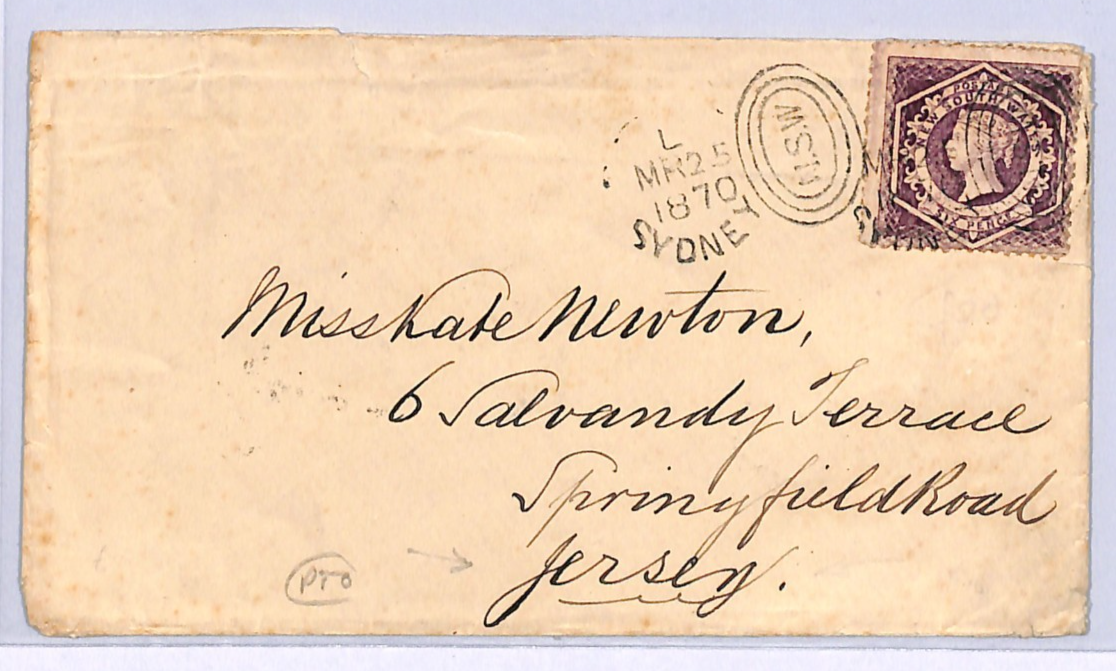 L
MR 25
1870
SYDNEY
NSW
POSTAGE
NEW SOUTH WALES
SIX PENCE
Miss Kate Newton,
6 Salvandy Terrace
Springfield Road
Jersey.
PTO